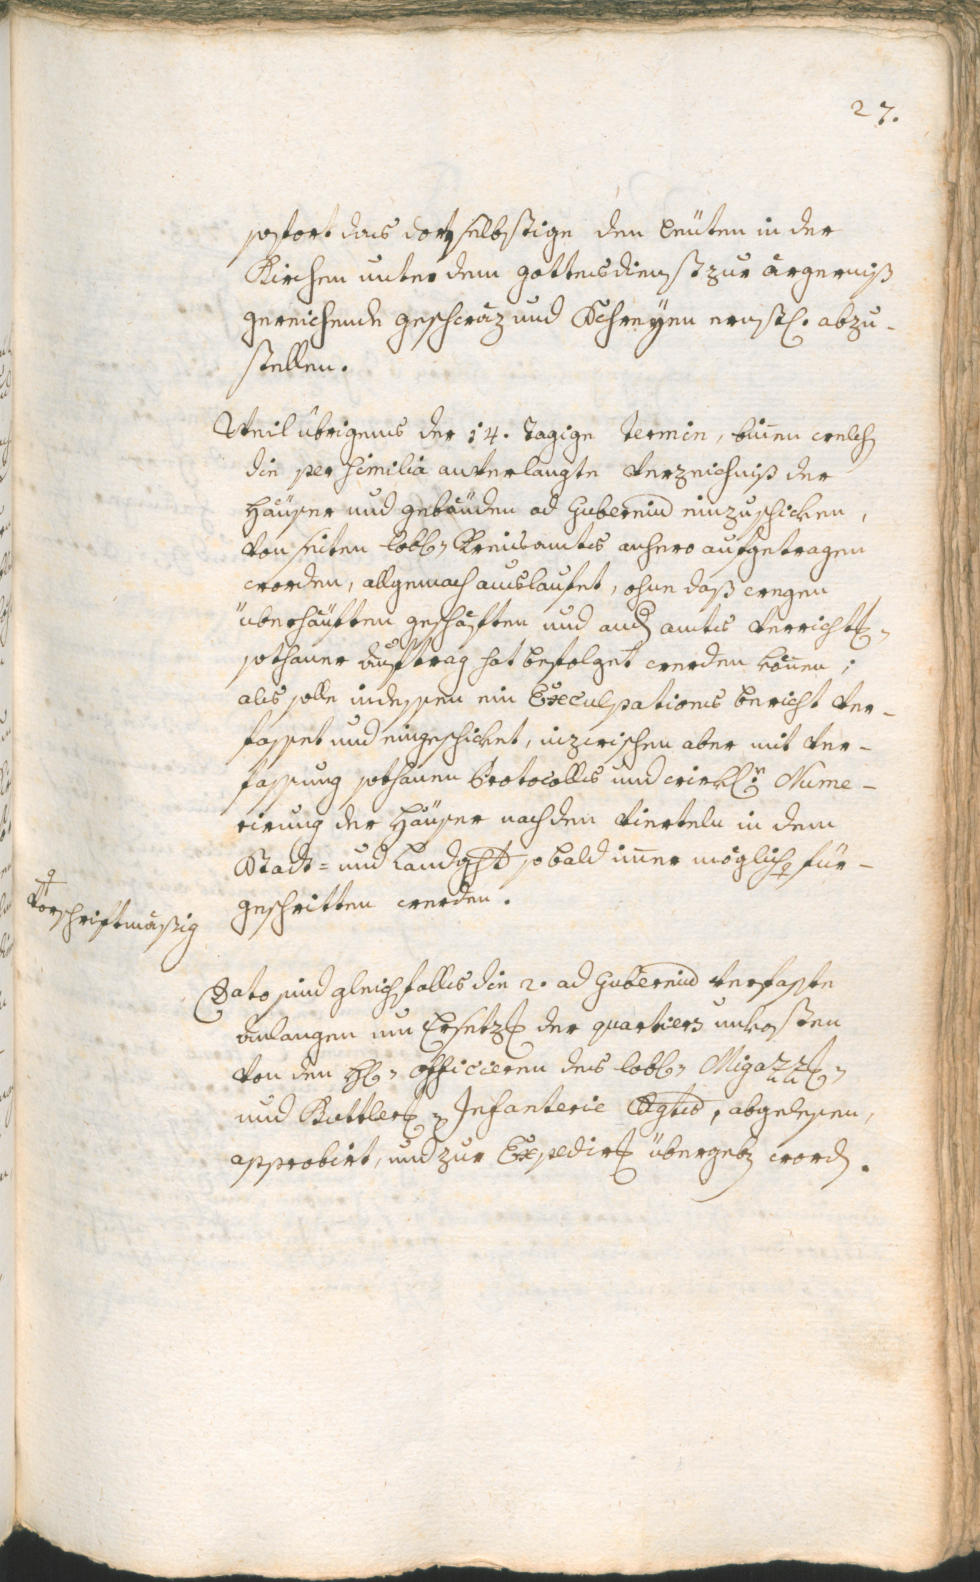 27.
sofort das dortselbstige den Leüten in der
Kirchen unter dem gottesdienst zur ärgerniß
gereichende geschwäz und Schreÿen ernstl. abzu-
stellen.
Weil übrigens der 14. tagige termin, biñen welch
die per similia anverlangte Verzeichniß der
Häuser und gebäuden ad Guberniũ einzuschicken,
von seiten lobl: Kreisamts anhero aufgetragen
worden, allgemach auslaufet, ohne daß wegen
überhäuften geschäften und and amts verricht:
sothaner auftrag hat befolget werden köñen;
als solle indessen ein Exculpations bericht ver-
fasset und eingeschicket, inzwischen aber mit ver-
fassung sothanen Protocolls und wirkl:r Nume-
rirung der Häuser nach den Vierteln in dem
Stadt- und Landght sobald im̃er möglich für-
geschritten werden.
Vorschriftmäßig
Dato sind gleichfalls die 2. ad Guberniũ verfaßte
anlangen um Ersetz: der quartiers unkosten
von den H: officieren des lobl: Migazz:
und Buttler: Infanterie Rgts, abgelesen,
approbirt, und zur Expedir: übergeb word.